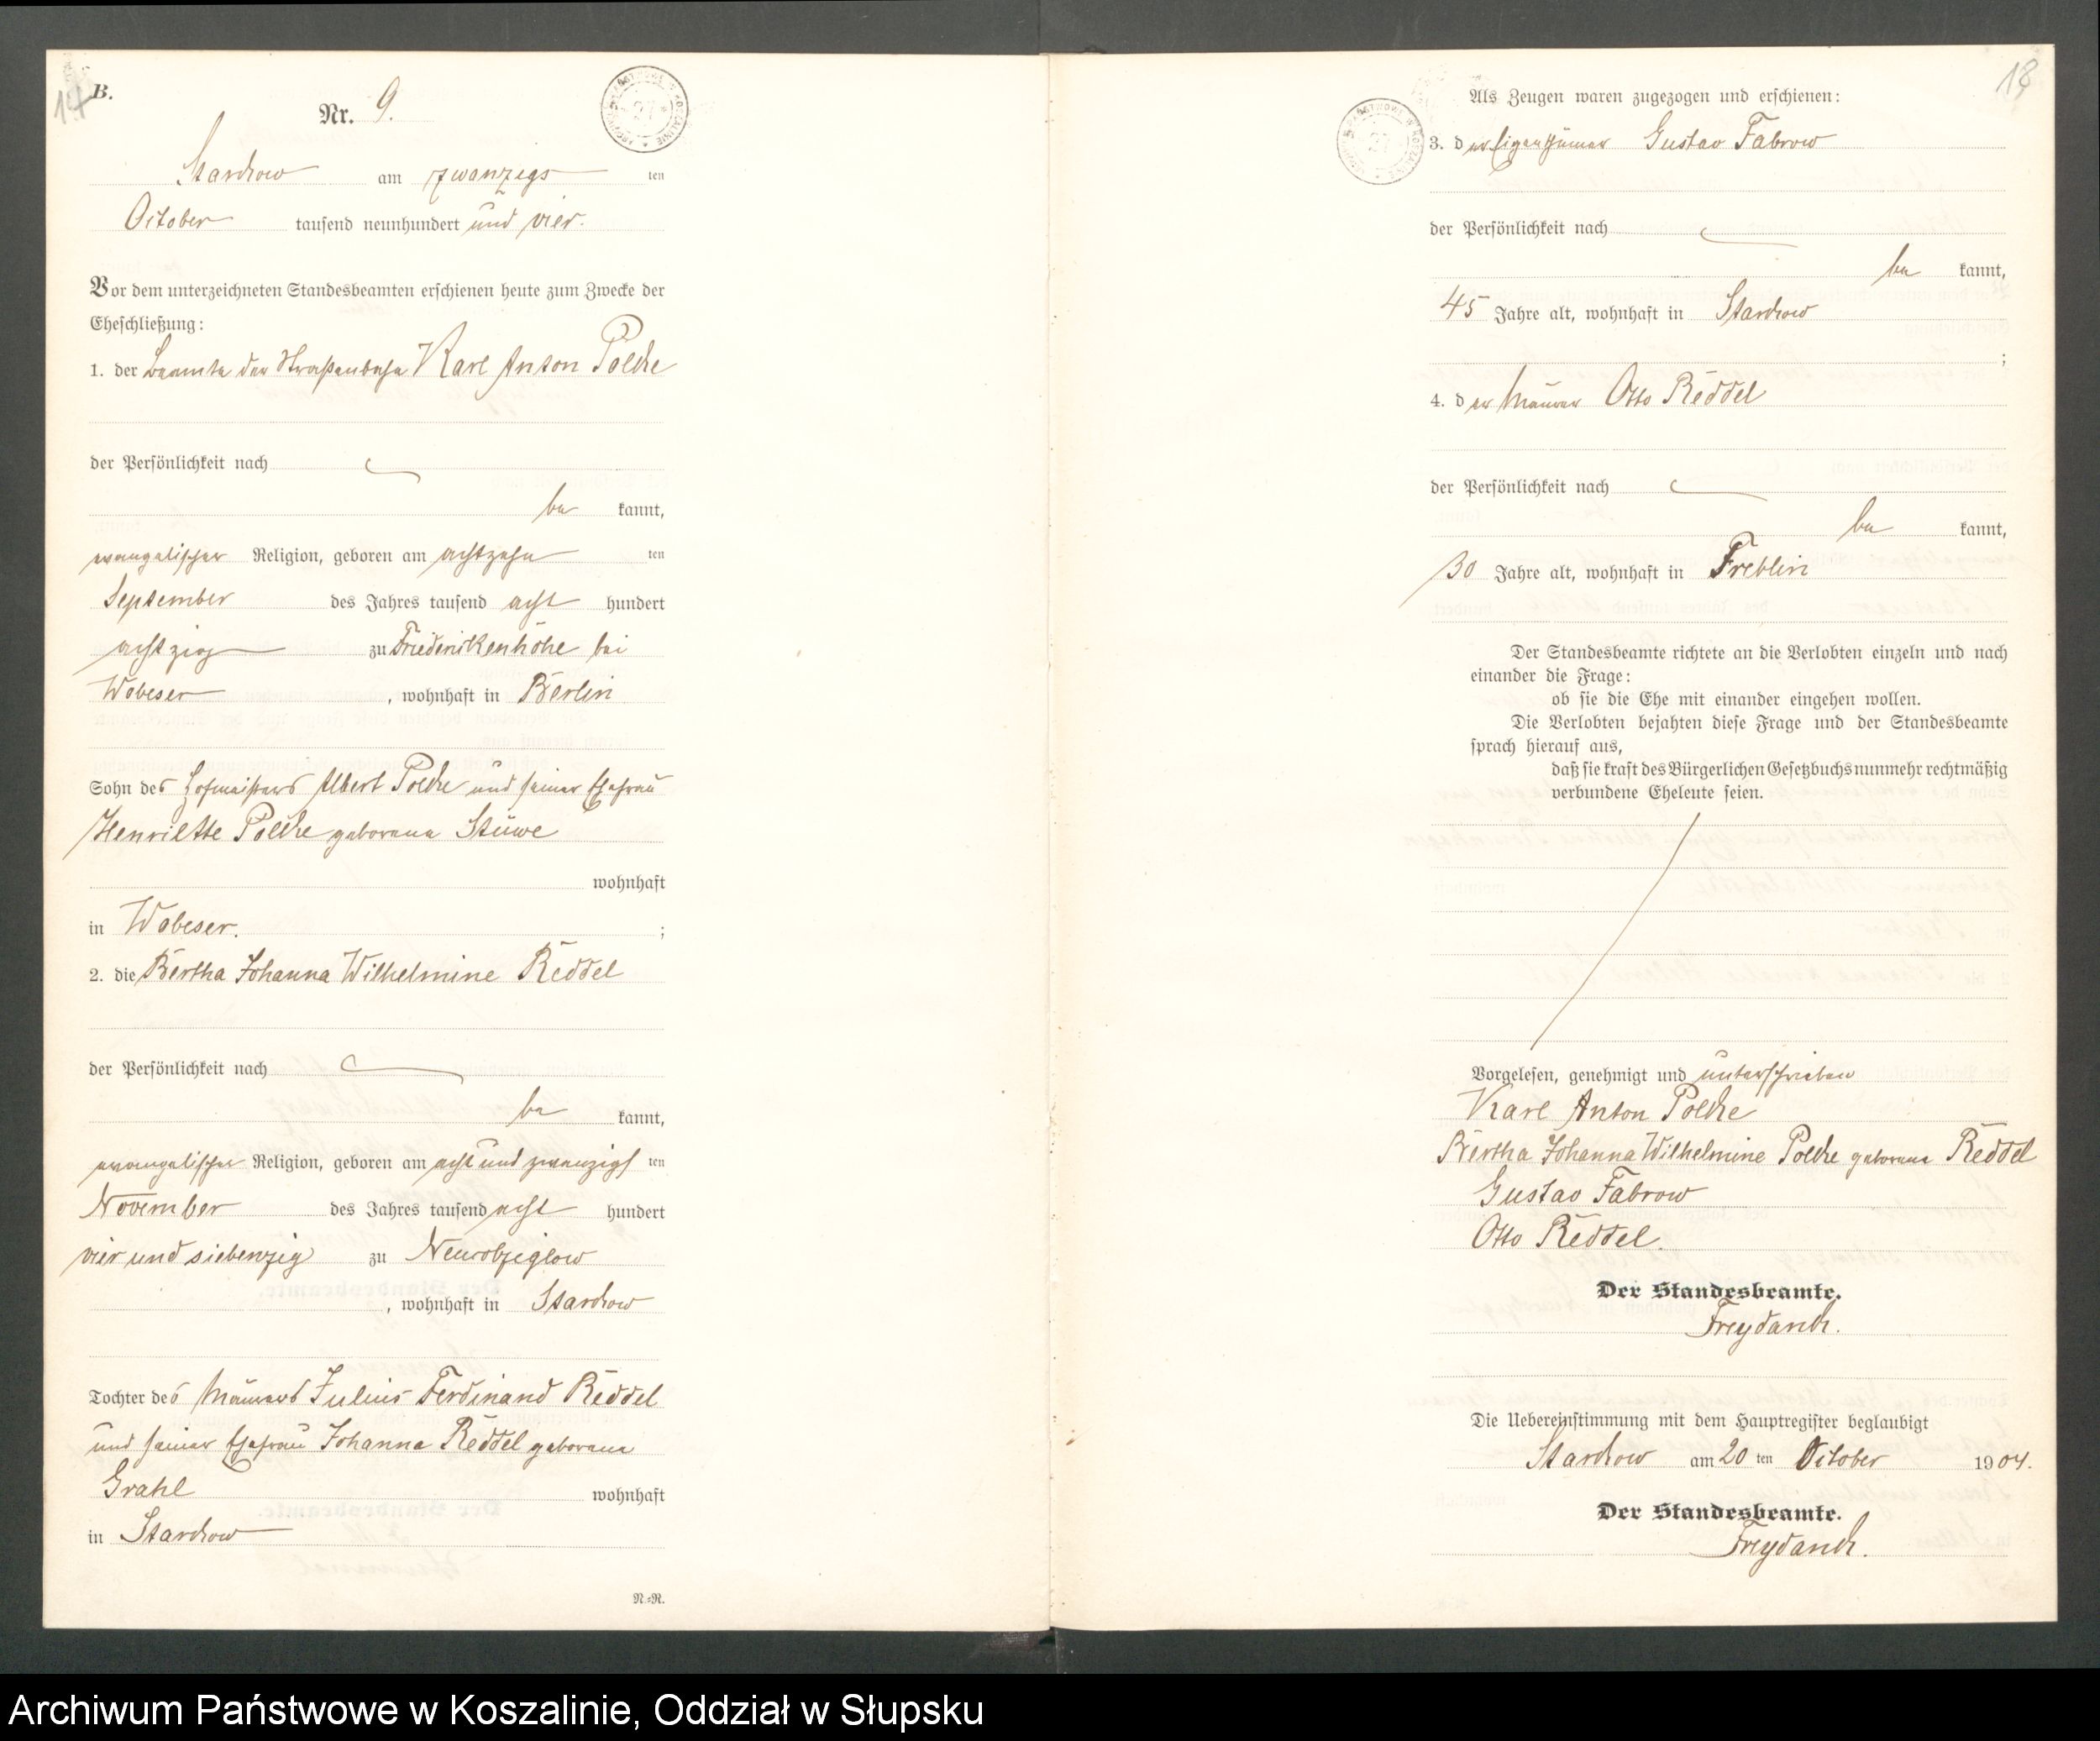 17
B.
Nr. 9.
Starkow am zwanzigs ten
October tausend neunhundert und vier.
Vor dem unterzeichneten Standesbeamten erschienen heute zum Zwecke der
Eheschließung:
1. der Beamte der Straßenbahn Karl Anton Polche
der Persönlichkeit nach
be kannt,
evangelischer Religion, geboren am achtzehn ten
September des Jahres tausend acht hundert
achtzig zu Friederikenhöhe bei
Wobeser, wohnhaft in Berlin
Sohn des Hofmeisters Albert Polche und seiner Ehefrau
Henriette Polche geborene Stüwe
wohnhaft
in Wobeser. ;
2. die Bertha Johanna Wilhelmine Reddel
der Persönlichkeit nach
be kannt,
evangelischer Religion, geboren am acht und zwanzigs ten
November des Jahres tausend acht hundert
vier und siebenzig zu Neukolziglow
, wohnhaft in Starkow
Tochter des Maurers Julius Ferdinand Reddel
und seiner Ehefrau Johanna Reddel geborene
Grahl wohnhaft
in Starkow
N.=R.
18
Als Zeugen waren zugezogen und erschienen:
3. der Eigenthümer Gustav Fabrow
der Persönlichkeit nach
be kannt,
45 Jahre alt, wohnhaft in Starkow
;
4. der Maurer Otto Reddel
der Persönlichkeit nach
be kannt,
30 Jahre alt, wohnhaft in Treblin
Der Standesbeamte richtete an die Verlobten einzeln und nach
einander die Frage:
ob sie die Ehe mit einander eingehen wollen.
Die Verlobten bejahten diese Frage und der Standesbeamte
sprach hierauf aus,
daß sie kraft des Bürgerlichen Gesetzbuchs nunmehr rechtmäßig
verbundene Eheleute seien.
Vorgelesen, genehmigt und unterschrieben
Karl Anton Polche
Bertha Johanna Wilhelmine Polche geborene Reddel
Gustav Fabrow
Otto Reddel.
Der Standesbeamte.
Freydank.
Die Uebereinstimmung mit dem Hauptregister beglaubigt
Starkow am 20 ten October 1904.
Der Standesbeamte.
Freydank.
Archiwum Państwowe w Koszalinie, Oddział w Słupsku